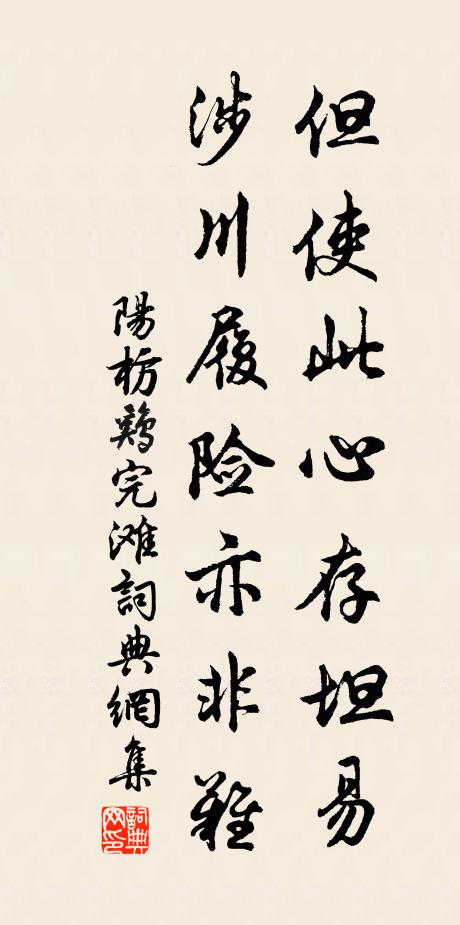 但使此心存坦易
涉川履险亦非難
陽枋鷄完滩詞典網集
詞典网印